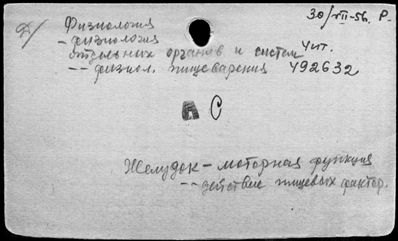 30/VII-56. Р.
Д/ Физиология
- физиология
отдельных органов и систем чит.
-- физиол. пищеварения 492632
А С
Желудок - моторная функция
-- действие пищевых фактор.